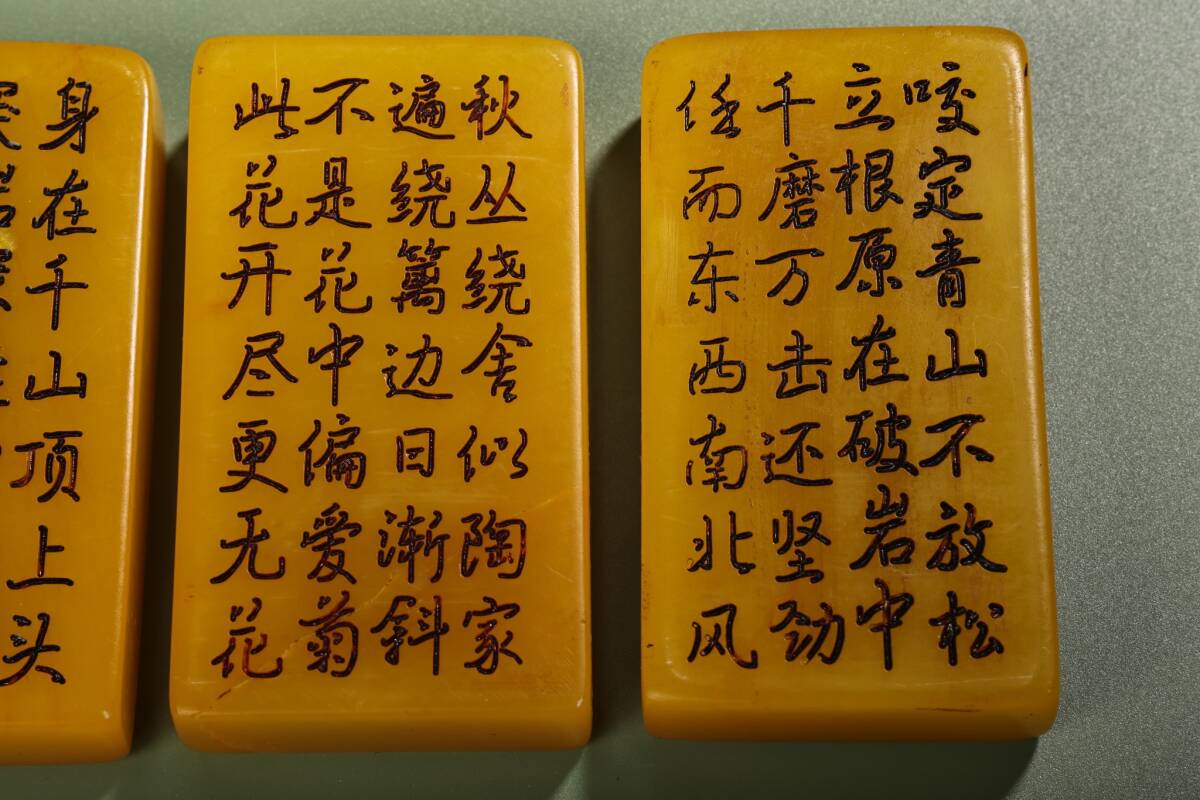 咬定青山不放松
立根原在破岩中
千磨万击还坚劲
任而东西南北风
秋丛绕舍似陶家
遍绕篱边日渐斜
不是花中偏爱菊
此花开尽更无花
身在千山顶上头